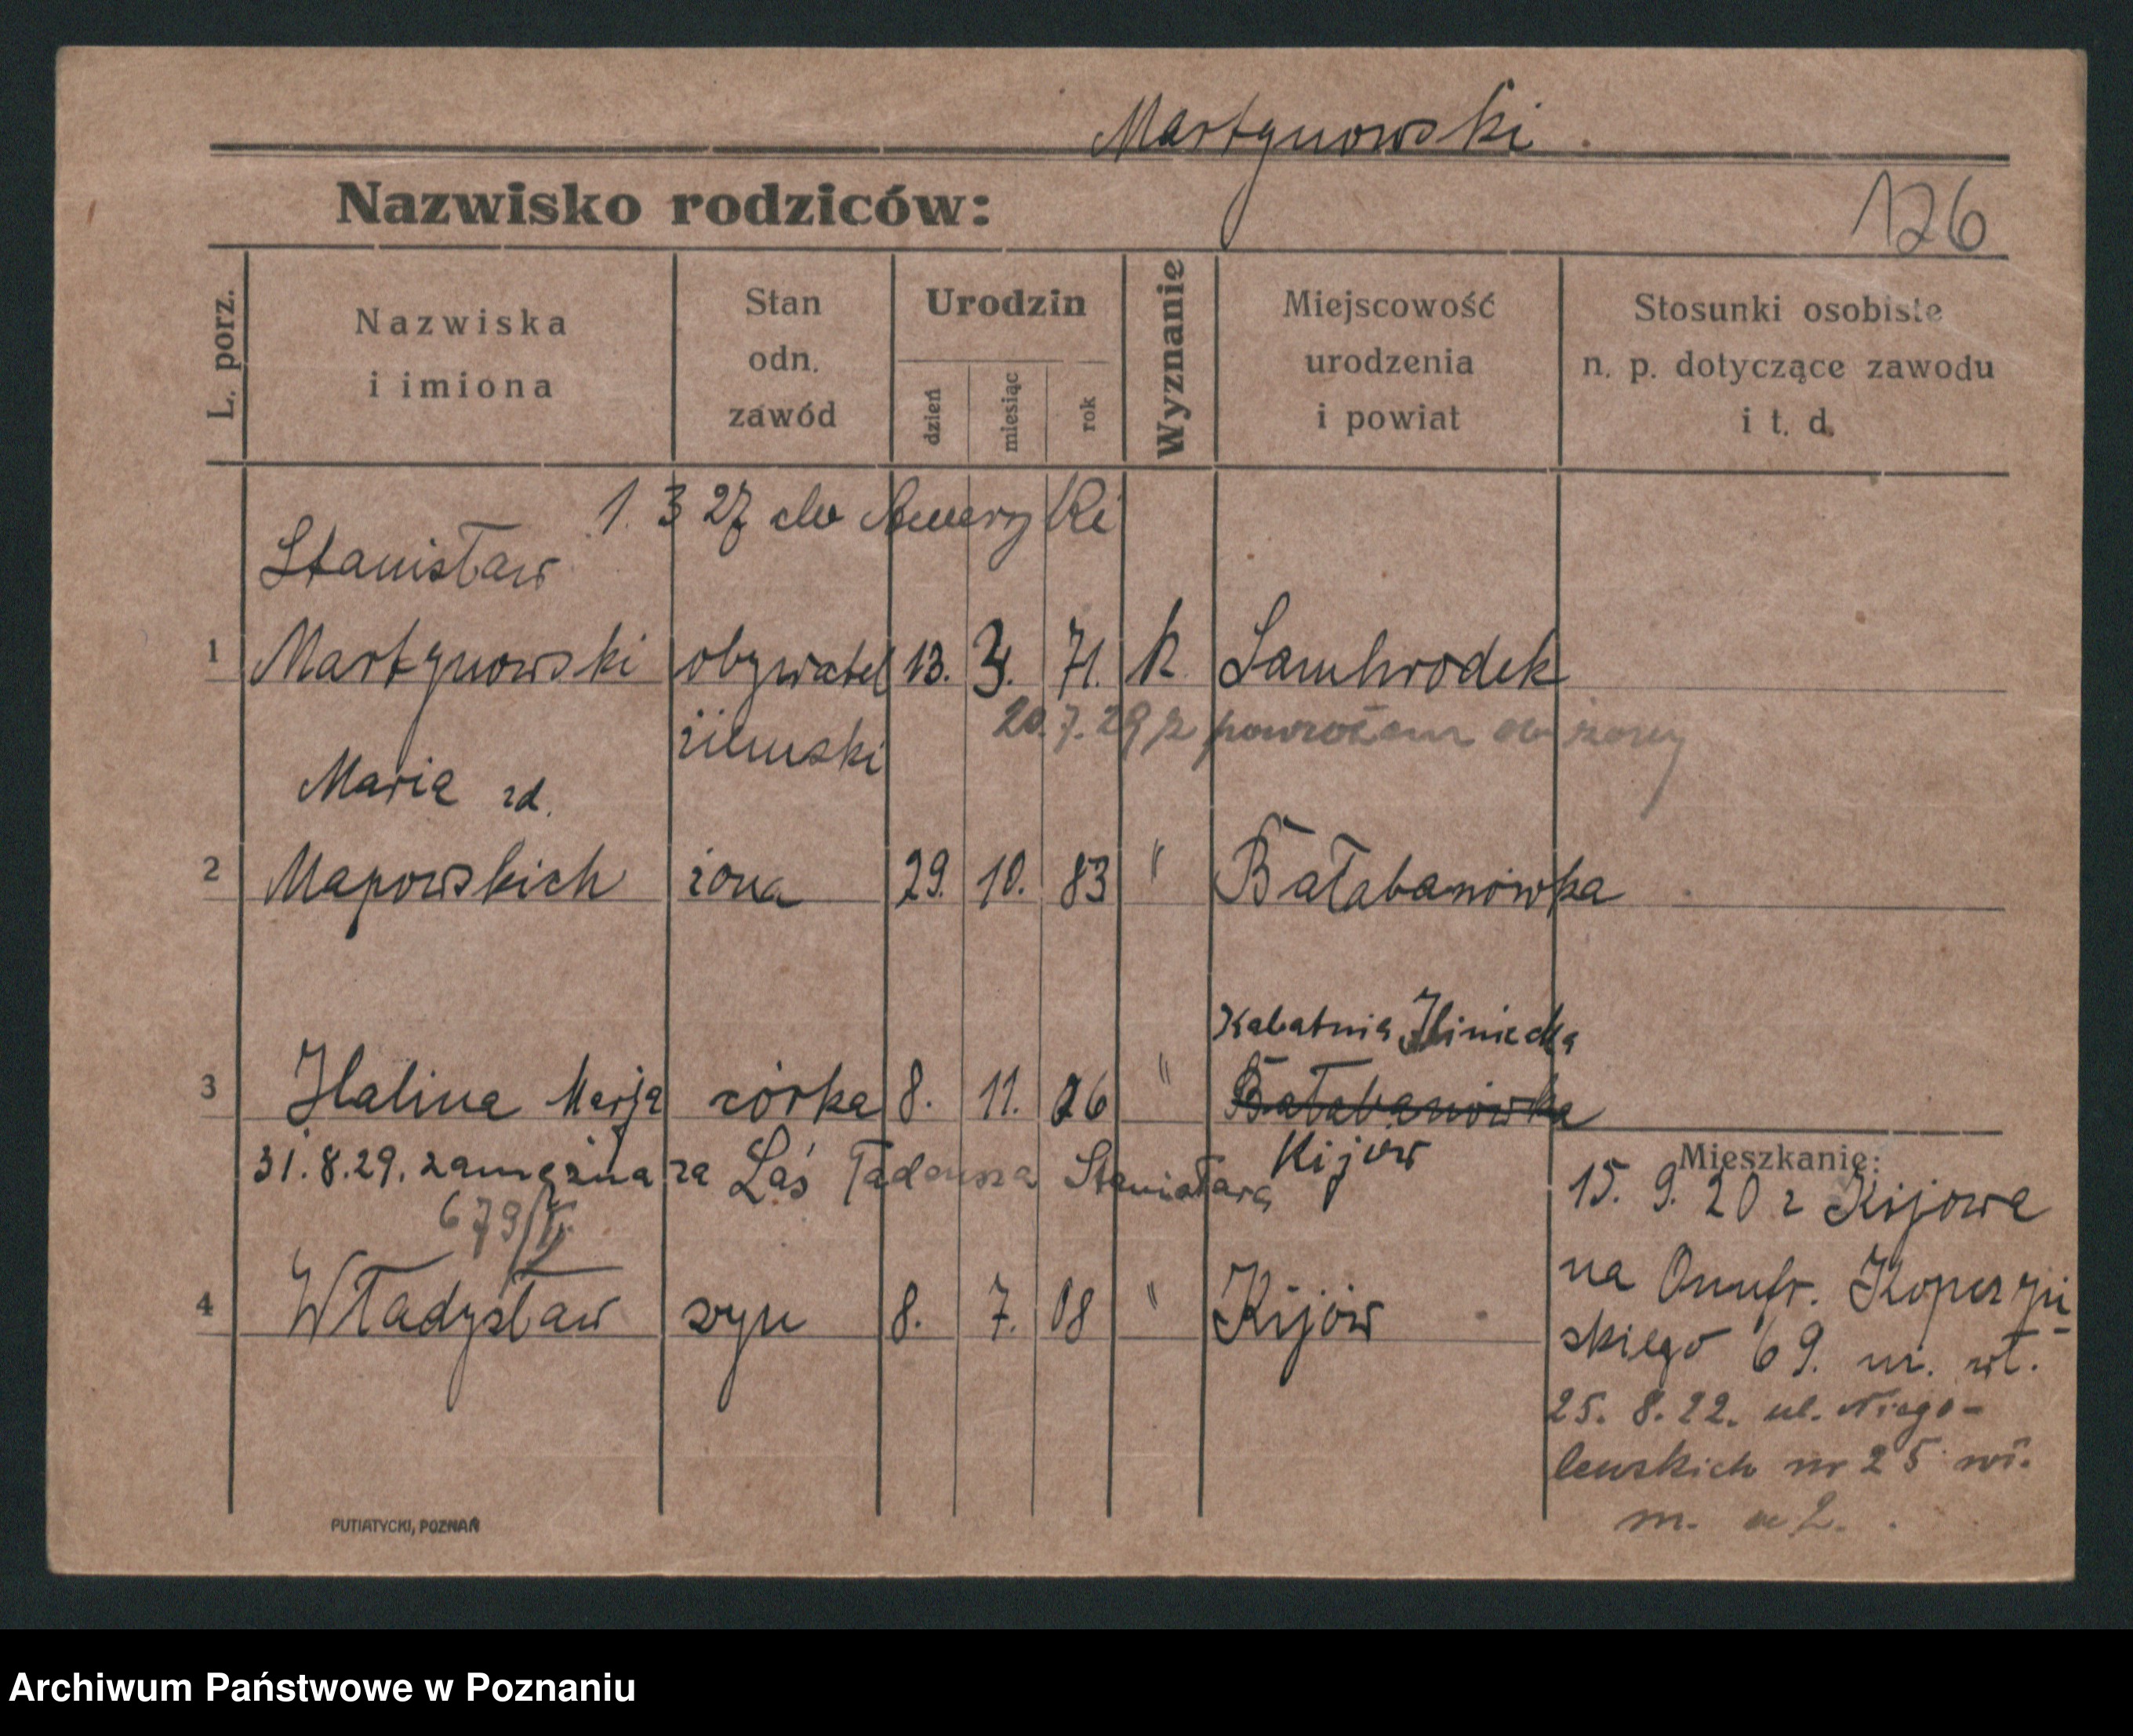 Martynowski.
Nazwisko rodziców:
126
L. porz.
Nazwiska i imiona
Stan odn. zawód
Urodzin
dzień miesiąc rok
Wyznanie
Miejscowość urodzenia i powiat
Stosunki osobiste n. p. dotyczące zawodu i t. d.
1. 3 27 do Ameryki
Stanisław
1 Martynowski obywatel 13. 3. 71. k Samhrodek
ziemski
20.7.29 z powrotem do żony
Maria zd.
2 Mapowskich żona 29. 10. 83 " Bałabanówka
Kabatnia
3 Halina Marja córka 8. 11. 06 " Bałabanówka
Kijów
31.8.29. zamężna za Laś Tadeusza Stanisława
679/
4 Władysław syn 8. 7. 08 " Kijów
Mieszkanie:
15. 9. 20 z Kijowa
na Onufr. Kopczyń
skiego 69. m. wł.
25. 8. 22. ul. Niego-
lewskich nr 25
m. 2.
PUTIATYCKI, POZNAŃ
Archiwum Państwowe w Poznaniu